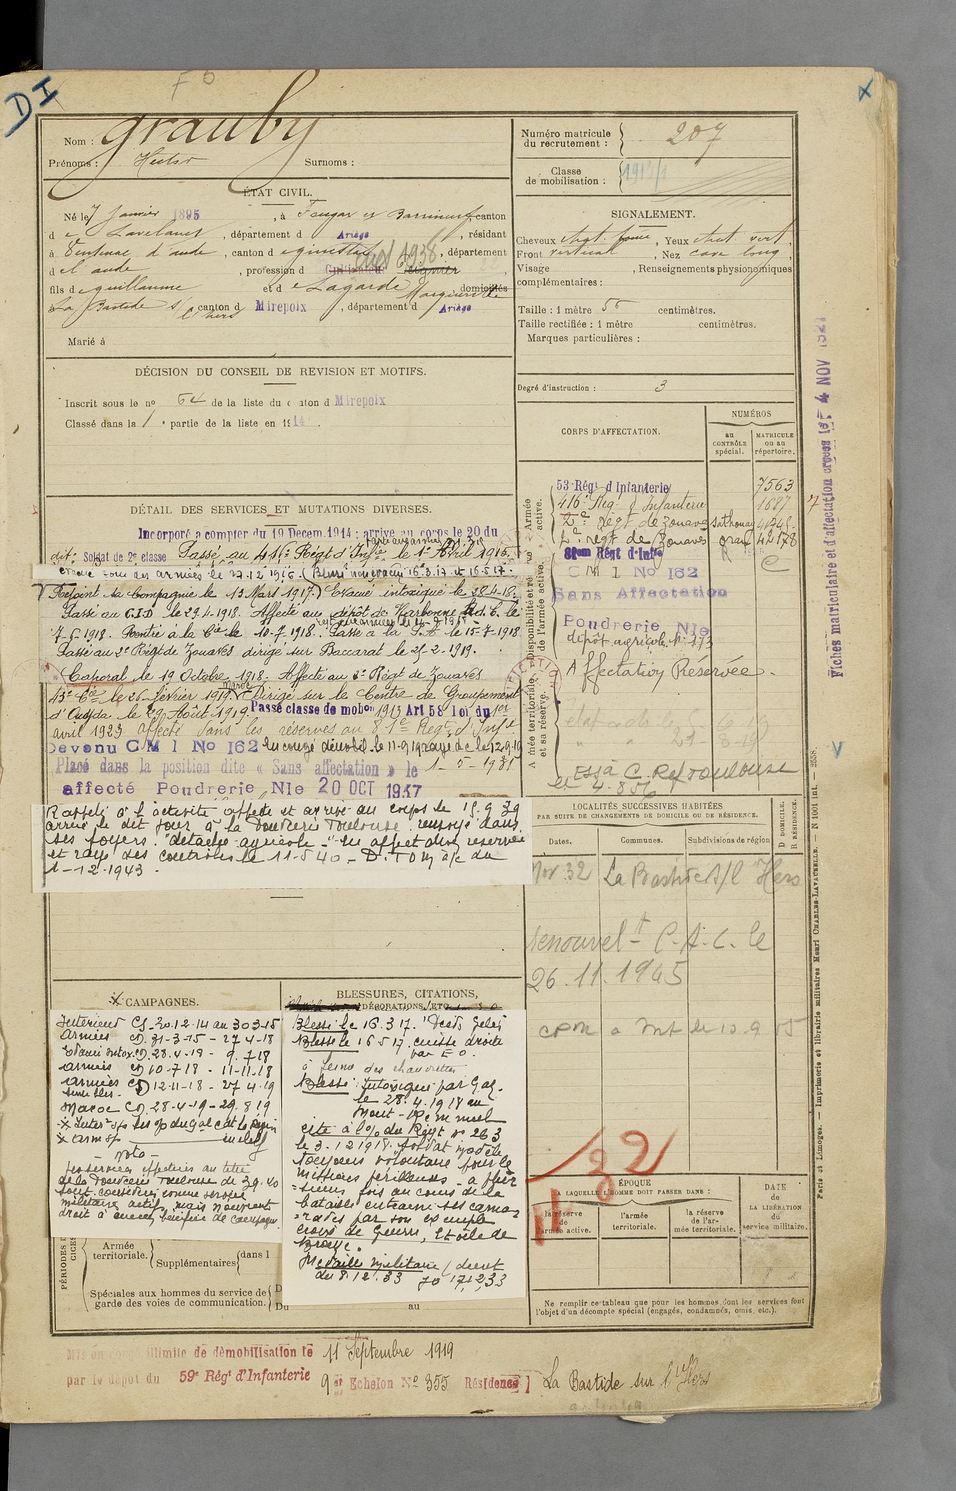 DI
F D
Nom : Grauby
Prénoms : Hector Surnoms :
Numéro matricule du recrutement : 207
Classe de mobilisation :
ÉTAT CIVIL.
Né le 7 Janvier 1895, à Fougax et Barrineuf canton
d e Lavelanet, département d Ariège, résidant
à Ventenac d'aude, canton d e ginestas, département
d e l'aude, profession d Cultivateur
fils d e guillaume et d e Lagarde Marguerite domiciliés
à La Bastide s/ l'hers canton d Mirepoix, département d Ariège
Marié à
SIGNALEMENT.
Cheveux chat. foncé, Yeux chat vert,
Front vertical, Nez cave long,
Visage , Renseignements physionomiques
complémentaires :
Taille : 1 mètre 55 centimètres.
Taille rectifiée : 1 mètre centimètres.
Marques particulières :
Degré d'instruction : 3
DÉCISION DU CONSEIL DE REVISION ET MOTIFS.
Inscrit sous le no 64 de la liste du canton d Mirepoix
Classé dans la 1e partie de la liste en 1914.
DÉTAIL DES SERVICES ET MUTATIONS DIVERSES.
Incorporé à compter du 19 Decem. 1914 : arrivé au corps le 20 du
dit: Soldat de 2e classe Passé au 416e Régt d'Infie le 1er Avril 1915.
évacué zone des armées le 27.12.1916. (Blessé 16.3.17 et 16.5.17.
Rejoint sa Compagnie le 13 Mars 1917.) Evacué intoxiqué le 28-4-18.
Passé au C.I.D le 29.4.1918. Affecté au dépôt de Narbonne le
7-6-1918. Rentré à la Cie le 10-7-1918. Passé à la S.A. le 15-7-1918
Passé au 2e Régt de Zouaves dirigé sur Baccarat le 25-2-1919.
Caporal le 19 Octobre 1918. Affecté au 2e Régt de Zouaves
45e Cie le 26 février 1919. Maroc Dirigé sur le Centre de Groupement
d'Oudjda le 29 Août 1919. Passé classe de mobon 1913 Art 58 loi du 1er
avril 1923 affecté dans les réserves au 81e Régt d'Infie
Devenu C M I No 162 En congé démob. le 11-9-19 rayé dc le 12-9-19
Placé dans la position dite « Sans affectation » le 1-5-1931
affecté Poudrerie Nle 20 OCT 1937
Rappelé à l'activité affecté et arrivé au corps le 15.9.39
arrivé le dit jour à la Poudrerie Toulouse. renvoyé dans
ses foyers. détaché agricole - En affectation réservée
et rayé des contrôles le 11-5-40 - D.T.O.M. a/c du
1-12-1943.
CORPS D'AFFECTATION.
NUMÉROS
au CONTRÔLE spécial.
MATRICULE ou au répertoire.
Armée active.
Disponibilité et réserve de l'armée active.
Armée territoriale et sa réserve.
53 Régt d'Infanterie 7563
416e Régt d'Infanterie 1687
2e Régt de Zouaves Sathonay
2e régt de Zouaves Oran 42158
81em Régt d'Infie
C M I No 162
Sans Affectation
Poudrerie Nle
dépôt agricole No 173
Affectation Réservée.
LOCALITÉS SUCCESSIVES HABITÉES
PAR SUITE DE CHANGEMENTS DE DOMICILE OU DE RÉSIDENCE.
Dates. Communes. Subdivisions de région
D DOMICILE. R RÉSIDENCE.
Nov 32 La Bastide s/l Hers
renouvelt C.A.C. le
26.11.1945
CAMPAGNES.
Intérieur CS. 20.12.14 au 30 3-15
Armées CD. 31-3-15 - 27 4-18
Evacué intox. CD. 28.4-19 - 9.7 18
armées CD 10-7-18 - 11-11-18
armées CS 12-11-18 - 27 4.19
Maroc CD. 28-4-19 - 29.8 19
- nota -
les services effectués au titre
de la Poudrerie Toulouse de 39.40
sont considérés comme services
militaires actifs, mais n'ouvrent
droit à aucun bénéfice de campagne.
BLESSURES, CITATIONS,
DÉCORATIONS, ETC.
Blessé le 16.3.17. "Pieds Gelés"
Blessé le 16 5 17. cuisse droite
par E O.
à ferme des chavrettes
Blessé : Intoxiqué par Gaz
le 28.4.1918 au
Mont-Kemmel
cité à l'o/ du Régt no 263
le 3-12 1918. soldat modèle
toujours volontaire pour les
missions périlleuses - a plusieurs
fois au cours de la
bataille entrainé ses camarades
par son exemple
croix de guerre, Etoile de
Bronze.
Médaille militaire / décret
du 8.12.33 JO 17.12.33
Armée territoriale. Supplémentaires dans l
Spéciales aux hommes du service de garde des voies de communication.
Du au
22
ÉPOQUE
À LAQUELLE L'HOMME DOIT PASSER DANS :
la réserve de l'armée active.
l'armée territoriale.
la réserve de l'armée territoriale.
DATE de LA LIBÉRATION du service militaire.
Ne remplir ce tableau que pour les hommes dont les services font
l'objet d'un décompte spécial (engagés, condamnés, omis, etc.).
Mis en congé illimité de démobilisation le 11 Septembre 1919
par le dépôt du 59e Régt d'Infanterie 9e Echelon No 355 Résidence La Bastide sur l'Hers
Fiches matriculaire et d'affectation créées le 4 NOV 1921
Paris et Limoges. — Imprimerie et librairie militaires Henri CHARLES-LAVAUZELLE.